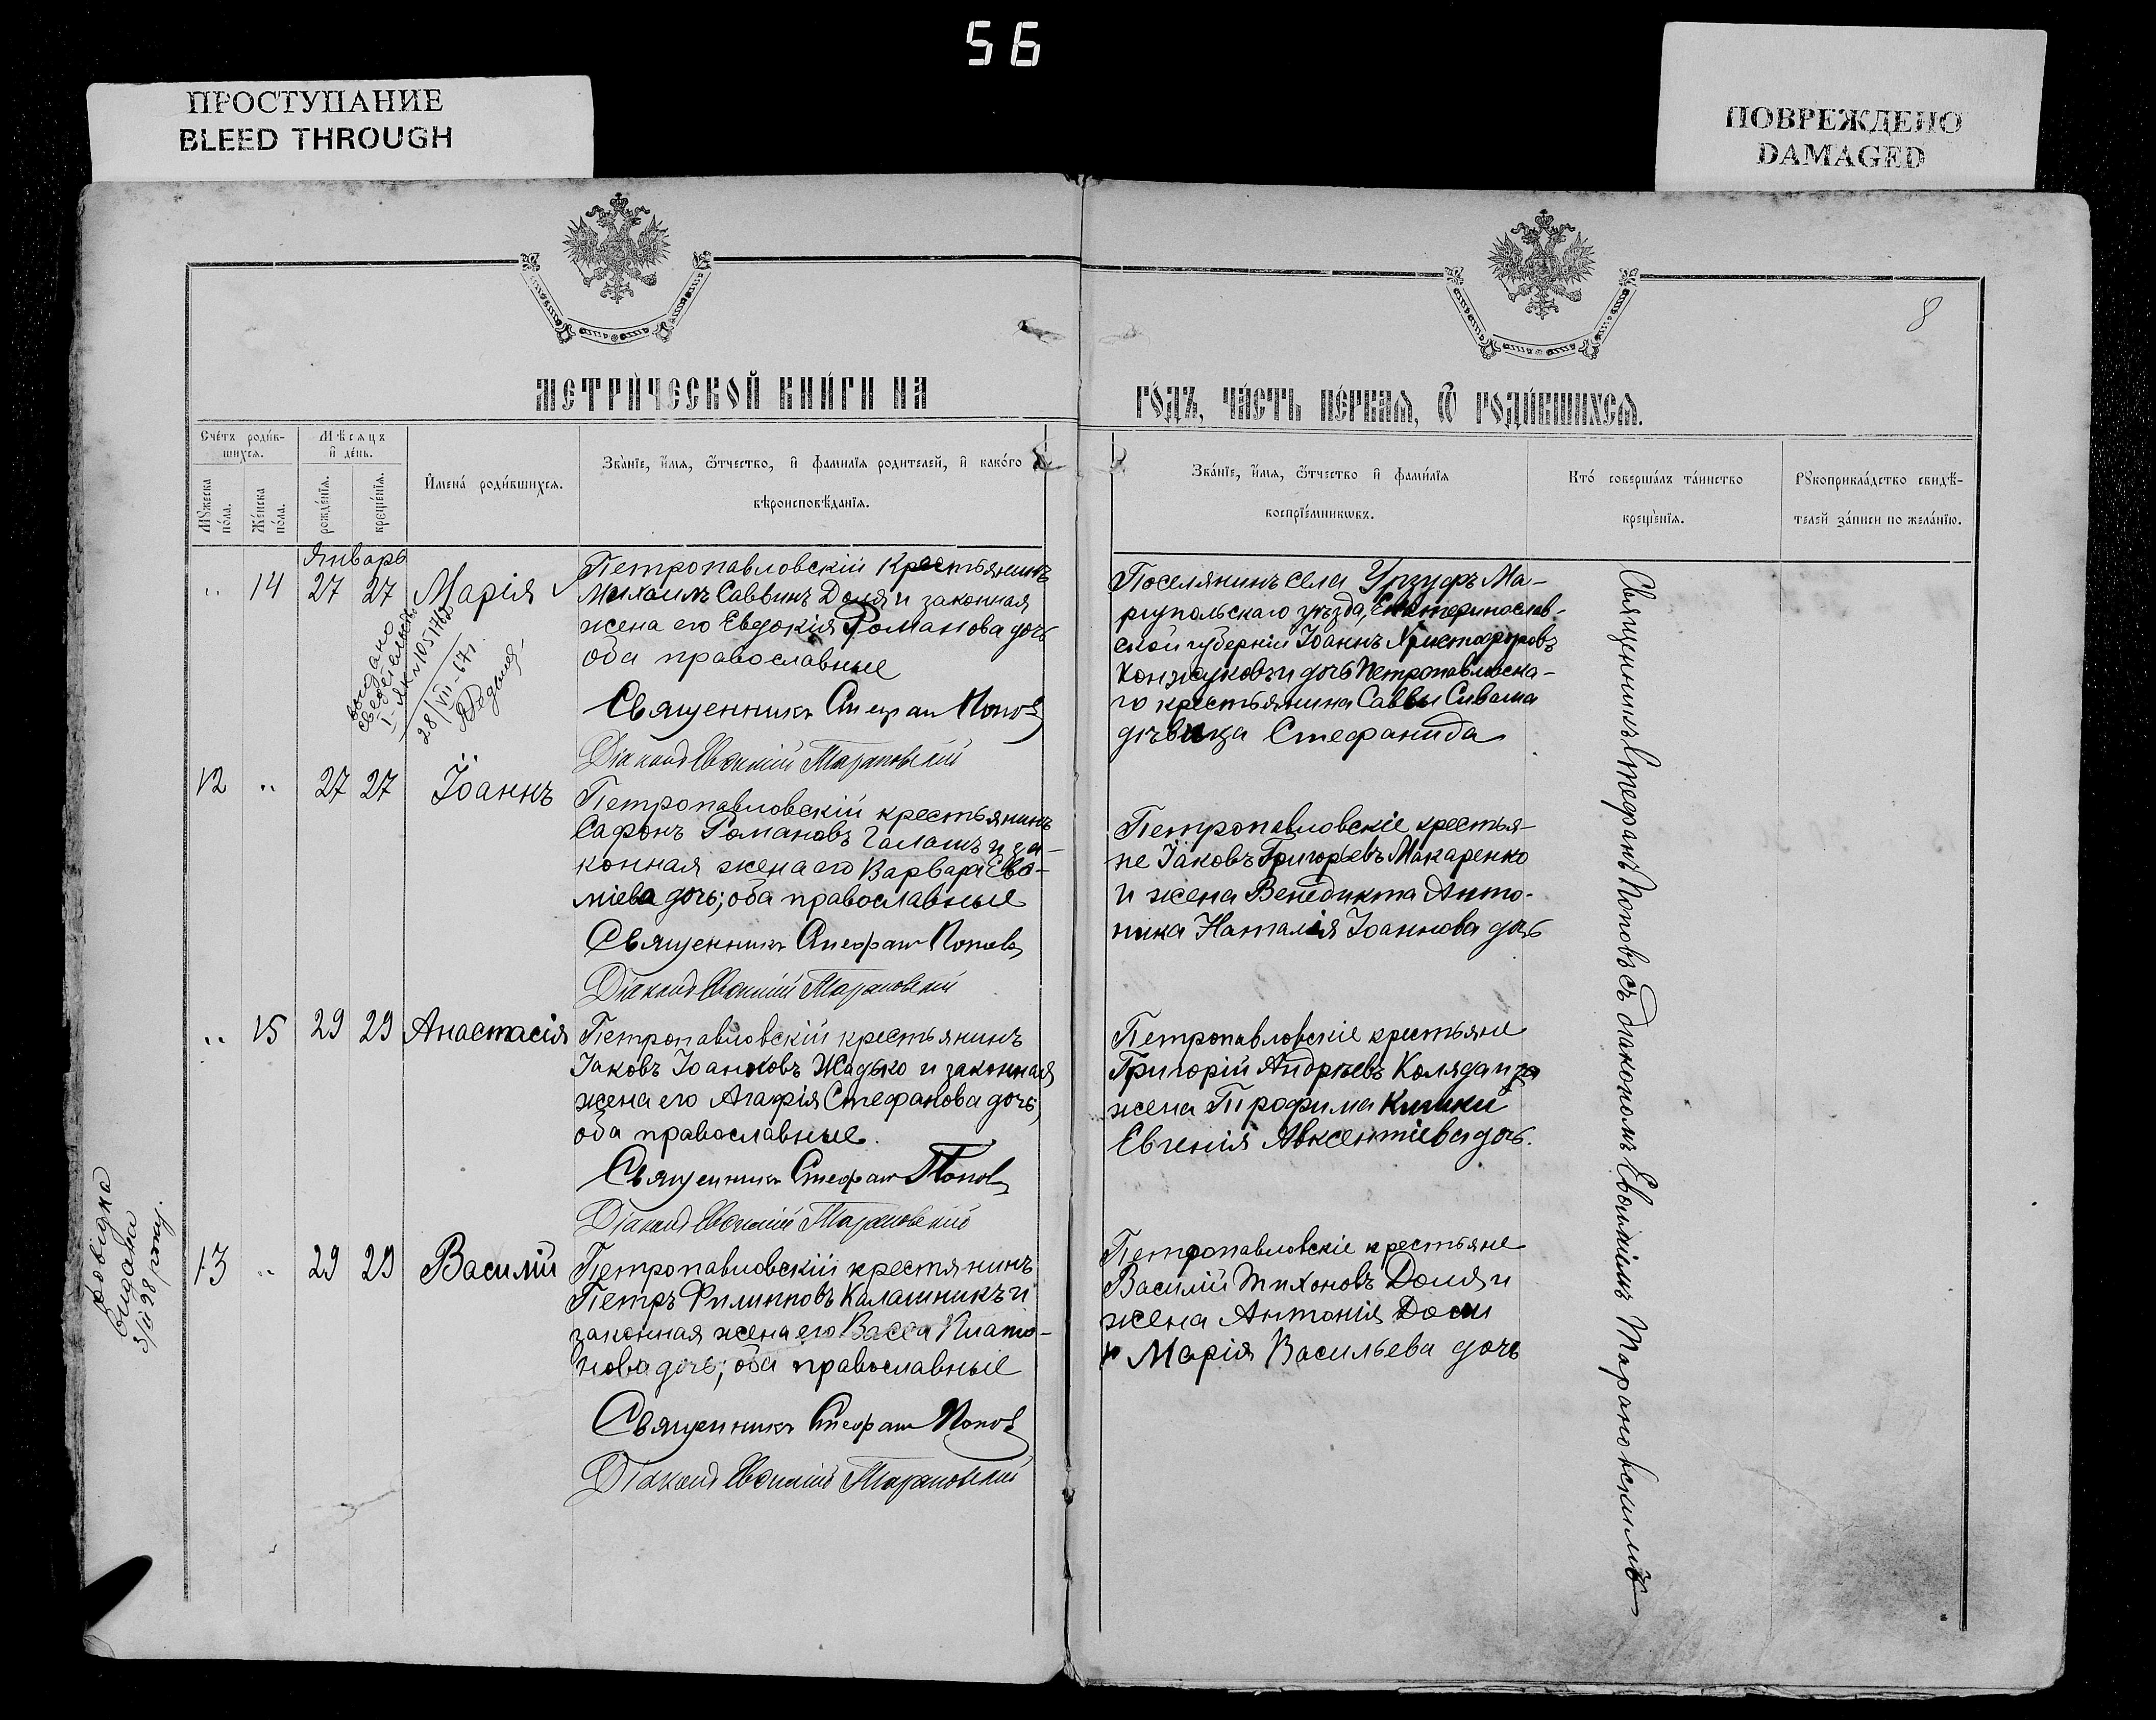 56
ПРОСТУПАНИЕ
BLEED THROUGH
ПОВРЕЖДЕНО
DAMAGED
8
МЕТРИ́ЧЕСКОЙ КНИ́ГИ НА
ГО́ДЪ, ЧА́СТЬ ПЕ́РВАѦ, Ѿ РОДИ́ВШИХСѦ.
Сче́тъ роди́в-
шихсѧ.
Мѣсѧцъ
и҆ де́нь.
И҆мена́ роди́вшихсѧ.
Зва́нїе, и҆́мѧ, ѻ҆́тчество, и҆ фамилїѧ родителей, и҆ како́го
вѣроисповѣ́данїѧ.
Мꙋ́жеска по́ла.
Же́нска по́ла.
рожде́нїѧ.
креще́нїѧ.
Зва́нїе, и҆́мѧ, ѻ҆́тчество и҆ фами́лїѧ
воспрїе́мникѡвъ.
Кто́ соверша́лъ та́инство
креще́нїѧ.
Рꙋкоприкла́дство свидѣ́-
телей за́писи по жела́нїю.
Январь
" 14 27 27 Марія
Петропавловскій Крестьянинъ
Михаилъ Саввинъ Доля и законная
жена его Евдокія Романова дочь
оба православные
Священникъ Стефанъ Поповъ
Діаконъ Евѳимій Тарановскій
Поселянинъ села Урзуфъ Ма-
ріупольскаго уѣзда, Екатеринослав-
ской губерніи Іоаннъ Христофоровъ
и дочь Петропавловска-
го крестьянина Саввы Сиваша
дѣвица Стефанида
выдано
свидетельство
28/VII-67г.
12 " 27 27 Іоаннъ
Петропавловскій крестьянинъ
Сафонъ Романовъ Галашъ и за-
конная жена его Варвара Евѳи-
міева дочь; оба православные
Священникъ Стефанъ Поповъ
Діаконъ Евѳимій Тарановскій
Петропавловскіе крестья-
не Іаковъ Григорьевъ Макаренко
и жена Венедикта Анто-
ника Наталія Іоаннова дочь
" 15 29 29 Анастасія
Петропавловскій крестьянинъ
Іаковъ Іоанновъ Жадько и законная
жена его Агафія Стефанова дочь,
оба православные.
Священникъ Стефанъ Поповъ
Діаконъ Евѳимій Тарановскій
Петропавловскіе крестьяне
Григорій Андреевъ Коляда и
жена Трофима
Евгенія Авксентіева дочь.
13 " 29 29 Василій
Петропавловскій крестянинъ
Петръ Филипповъ Калашникъ и
законная жена его Васса Плато-
нова дочь; оба православные
Священникъ Стефанъ Поповъ
Діаконъ Евѳимій Тарановскій
Петропавловскіе крестьяне
Василій Тихоновъ Доля и
жена Антонія Доли
Марія Васильева дочь
довідка
видана
Священникъ Стефанъ Поповъ съ діакономъ Евѳиміемъ Тарановскимъ